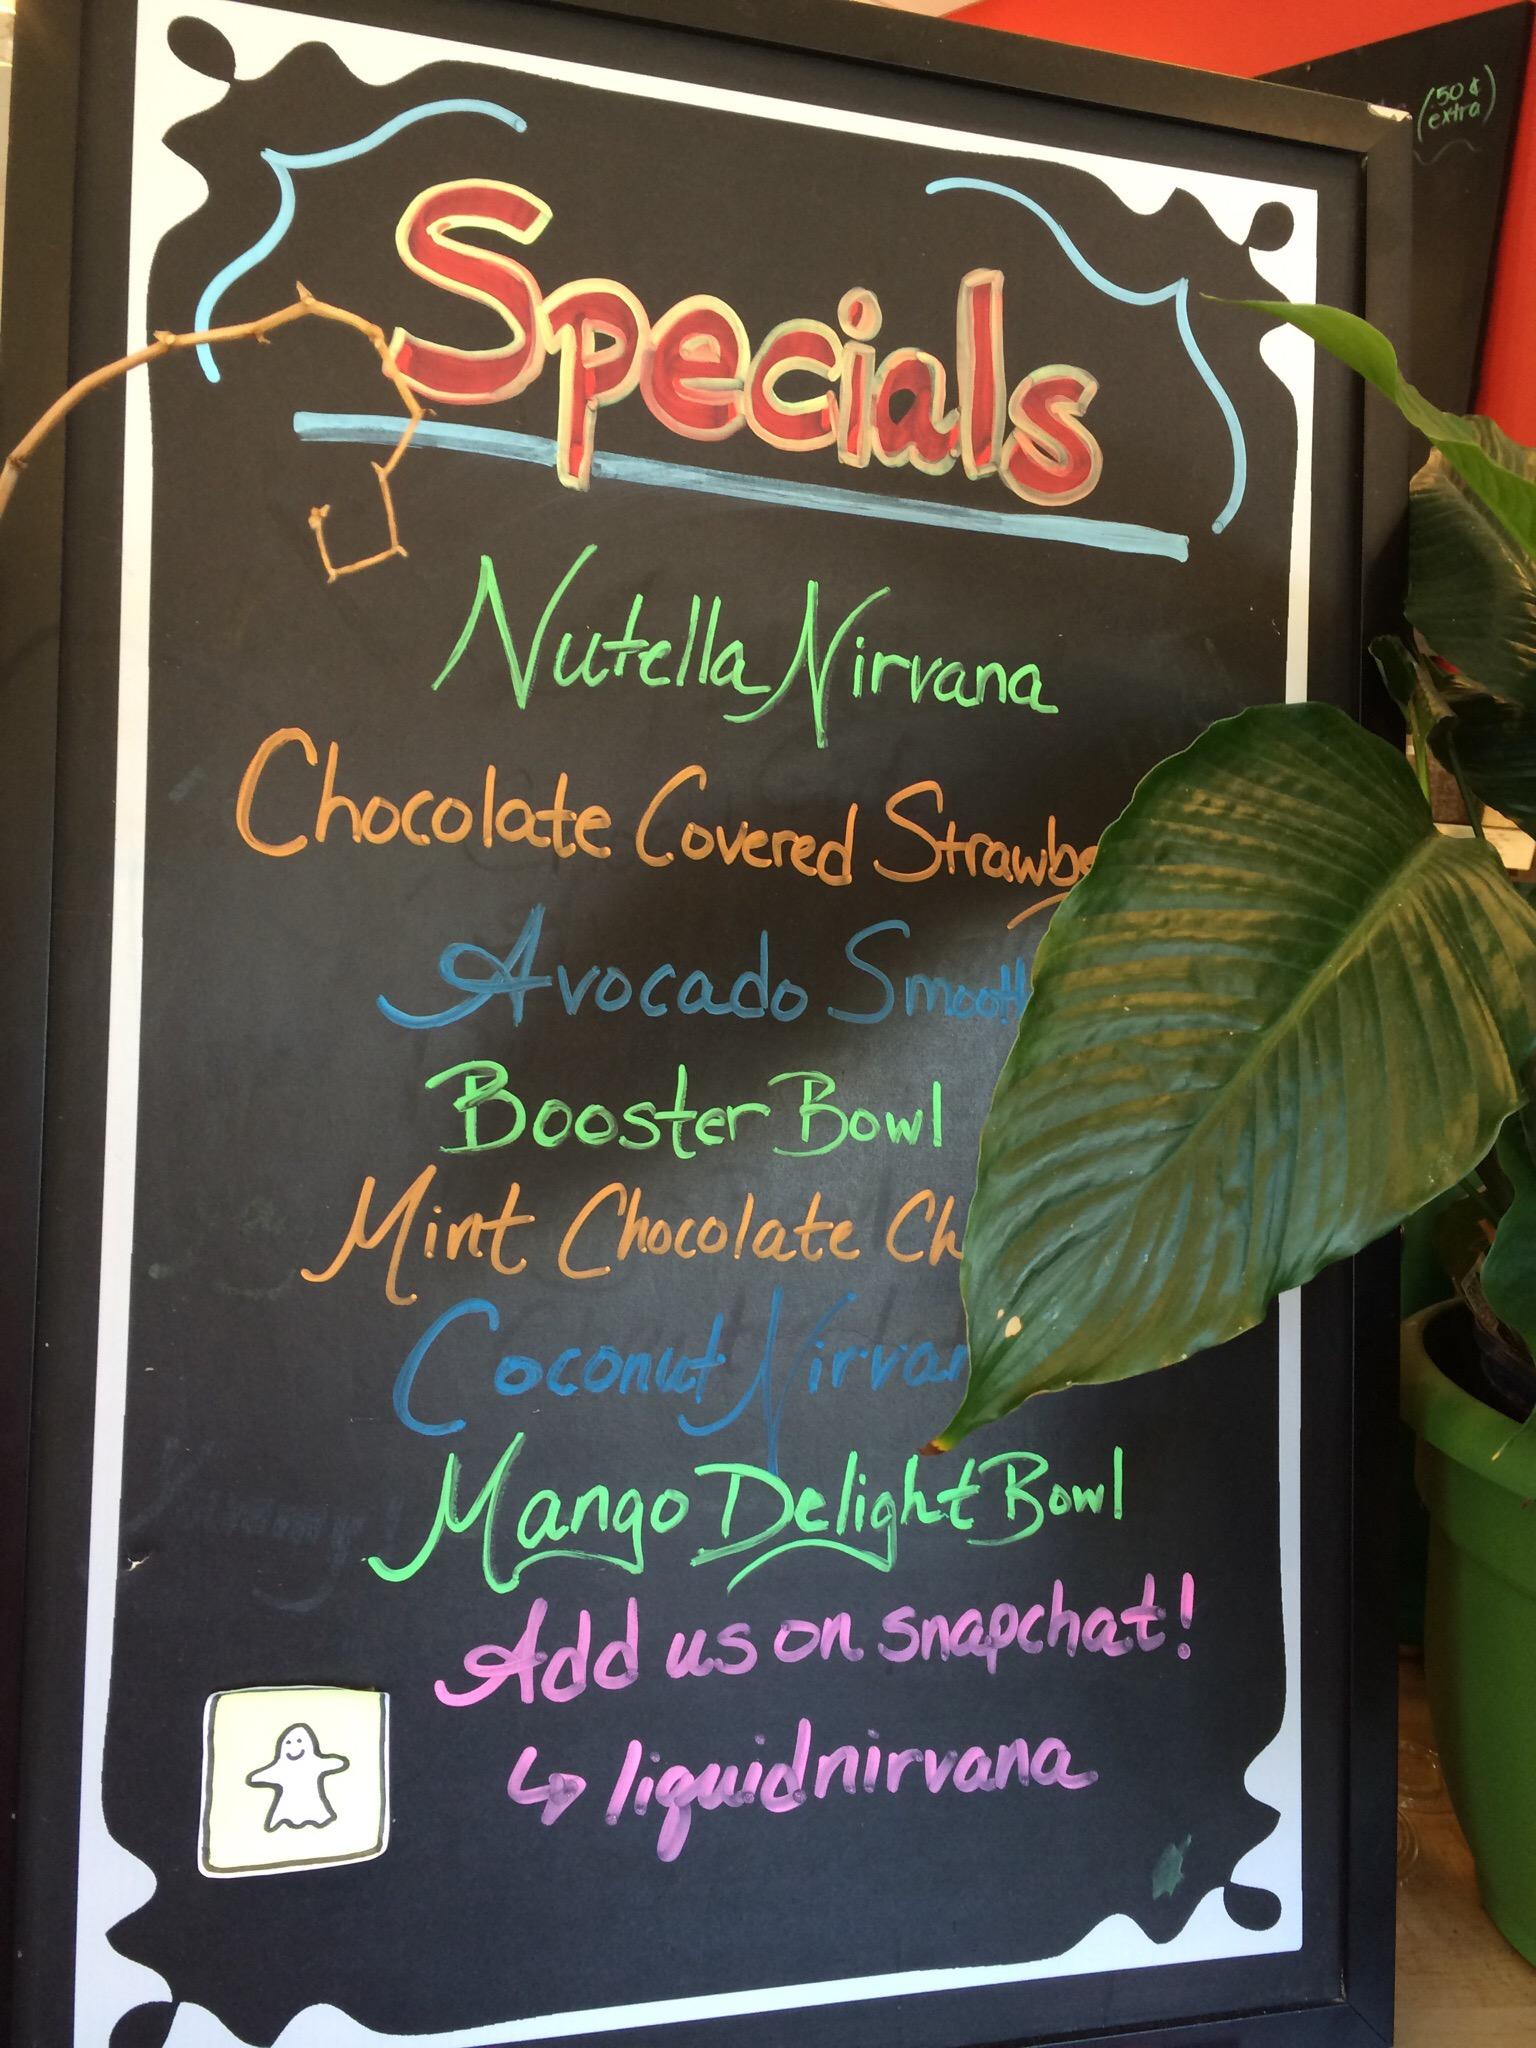 (.50¢
extra)
Specials
Nutella Nirvana
Chocolate Covered Strawbe
Avocado Smooth
Booster Bowl
Mint Chocolate Ch
Coconut Nirvan
Mango Delight Bowl
Add us on snapchat!
↳ liquidnirvana